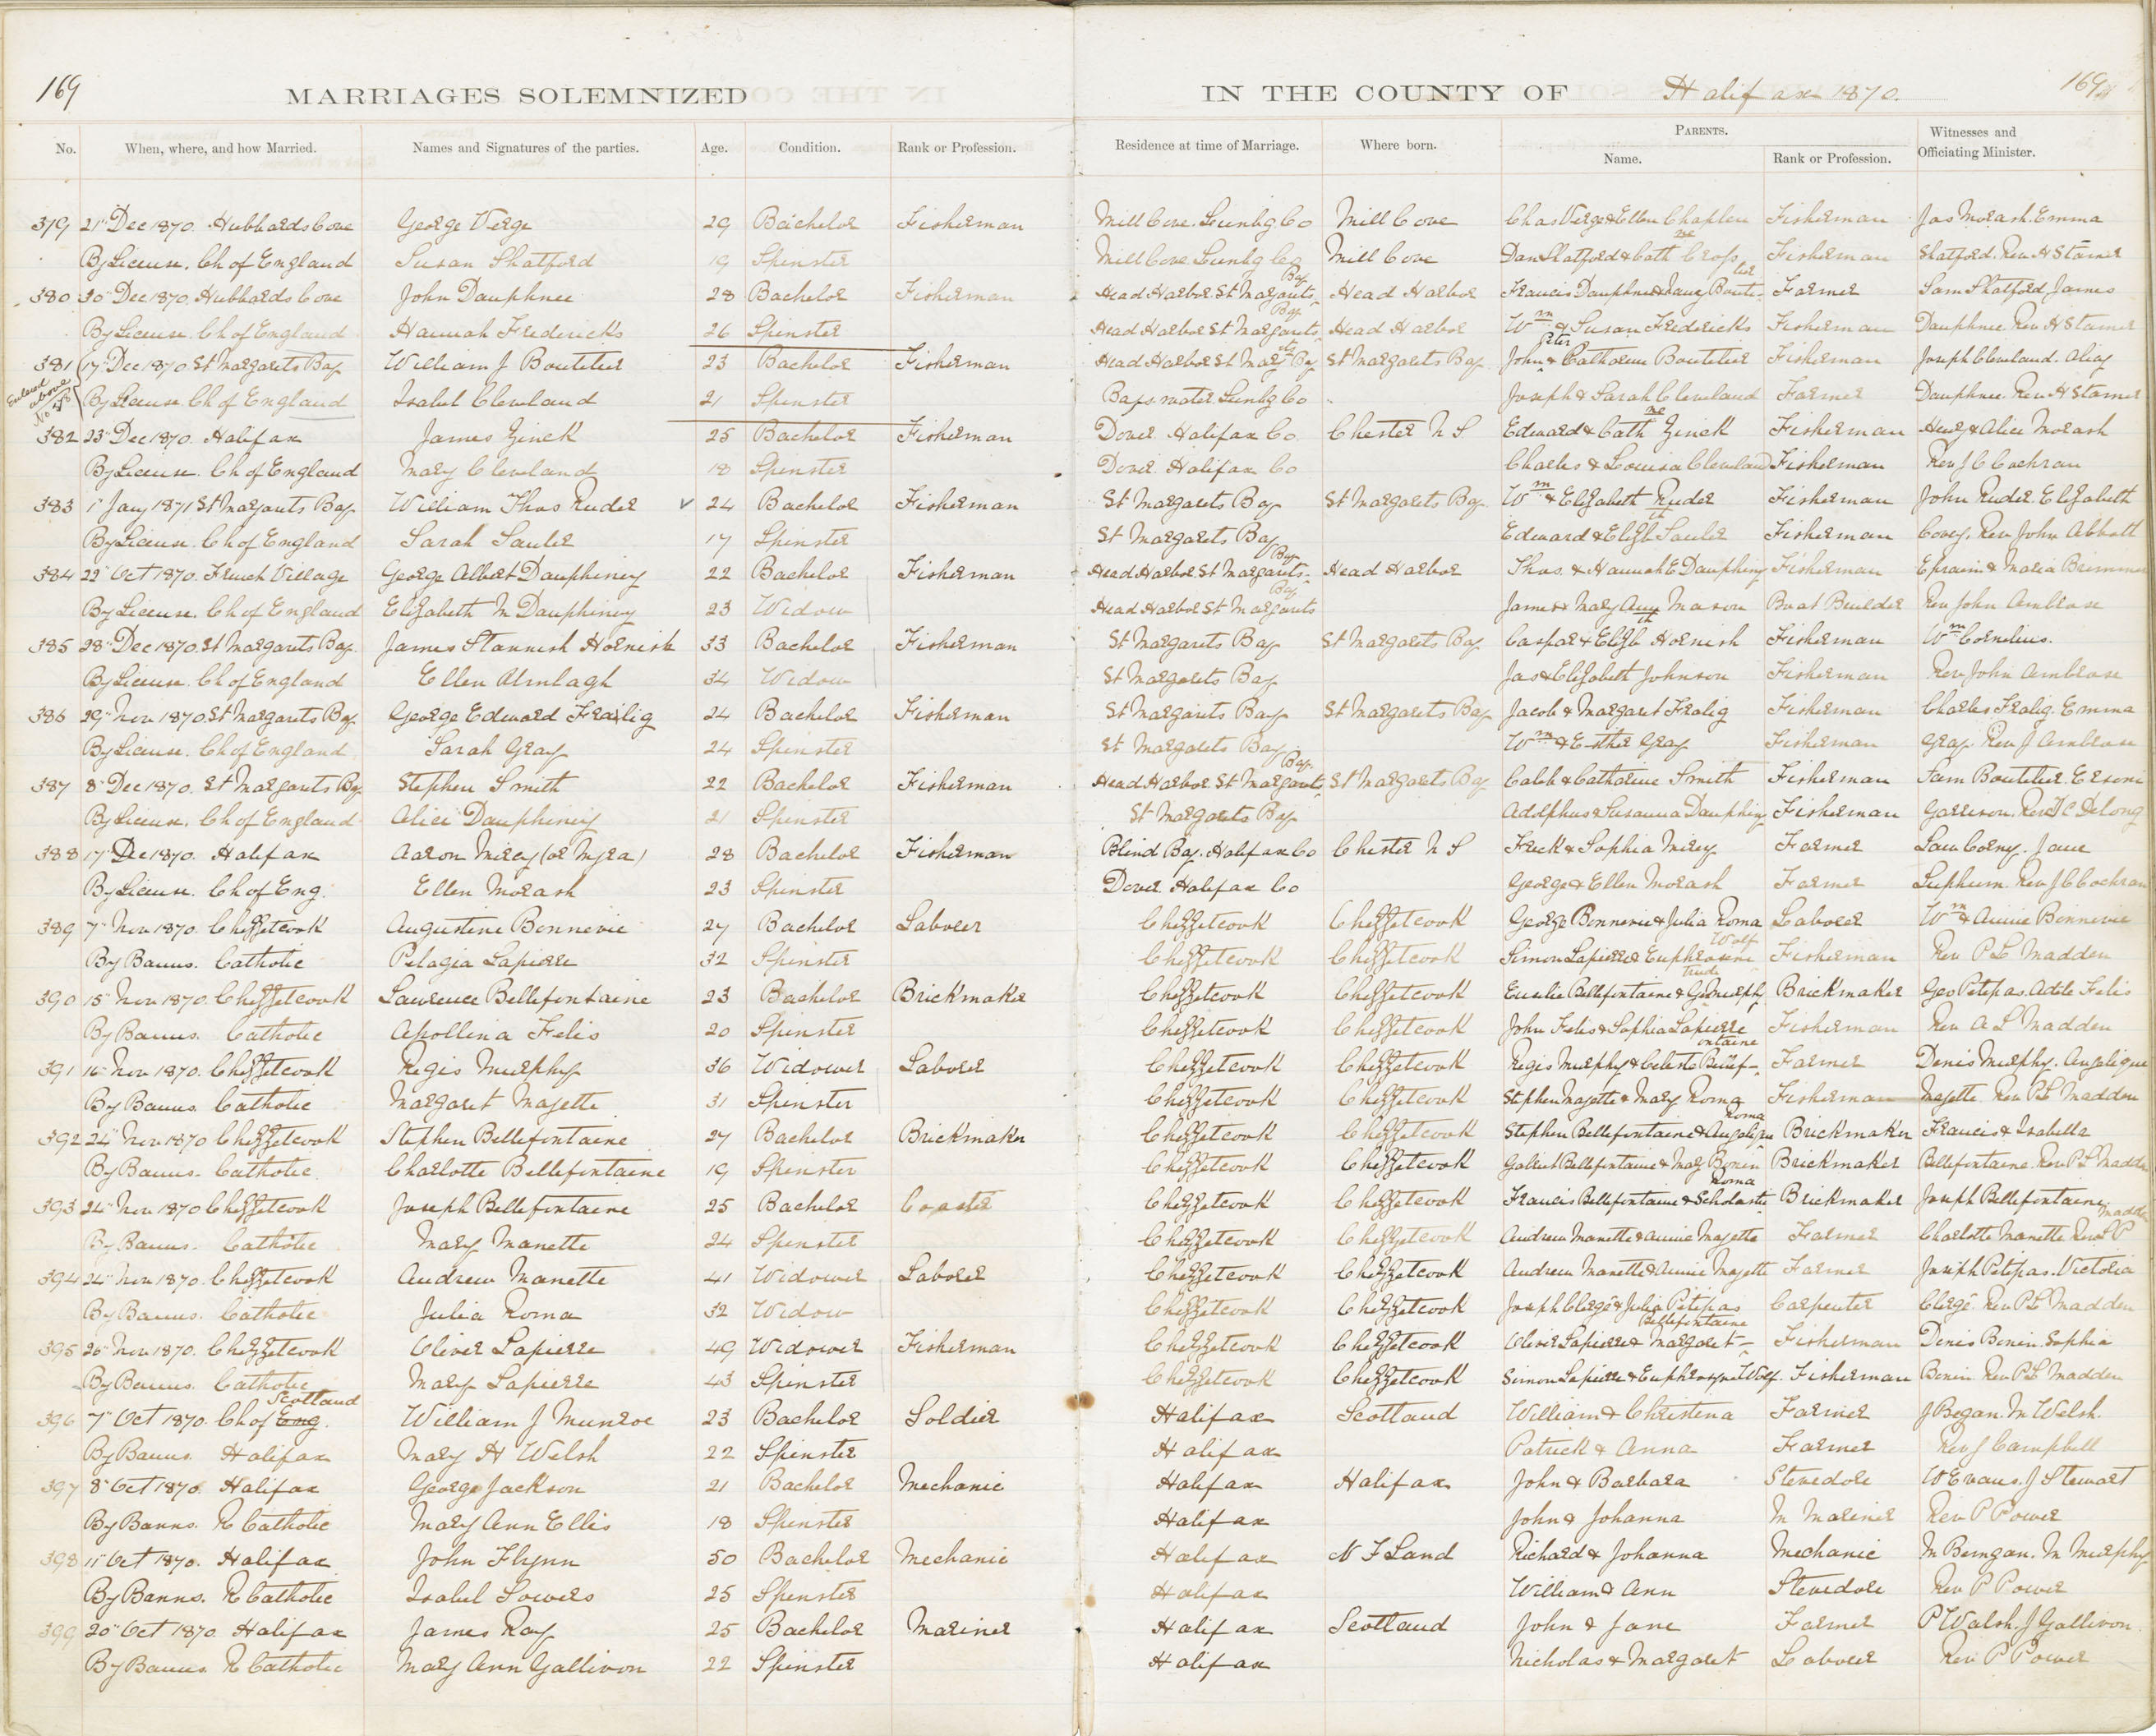 169
169
MARRIAGES SOLEMNIZED IN THE COUNTY OF Halifax 1870.
No. When, where, and how Married. Names and Signatures of the parties. Age. Condition. Rank or Profession. Residence at time of Marriage. Where born. PARENTS. Name. Rank or Profession. Witnesses and Officiating Minister.
379 21" Dec 1870. Hubbards Cove George Verge 29 Bachelor Fisherman Mill Cove. Lunbg Co Mill Cove Chas Verge & Ellen Chaplen Fisherman Jas Morash. Emma
By License. Ch of England Susan Shatford 19 Spinster Mill Cove Lunbg Co Mill Cove Dan Shatford & Cathne Cross Fisherman Shatford. Rev. H Stamer
380 30" Dec 1870. Hubbards Cove John Dauphnee 28 Bachelor Fisherman Head Harbor St Margarets Bay Head Harbor Francis Dauphnee & Boutelier Farmer Sam Shatford James
By License. Ch of England Hannah Fredericks 26 Spinster Head Harbor St Margarets Bay Head Harbor Wm & Susan Fredericks Fisherman Dauphnee. Rev H Stamer
381 17" Dec 1870. St Margarets Bay William J Boutelier 23 Bachelor Fisherman Head Harbor St Margts Bay St Margarets Bay John Peter & Catherine Boutelier Fisherman Joseph Cleveland. Alias
Entered above No 378 By License. Ch of England Isabel Cleveland 21 Spinster Bayswater Lunbg Co Joseph & Sarah Cleveland Farmer Dauphnee. Rev H Stamer
382 23" Dec 1870. Halifax James Zinck 25 Bachelor Fisherman Dover Halifax Co Chester N S Edward & Cathne Zinck Fisherman Henry & Alice Morash
By License. Ch of England Mary Cleveland 18 Spinster Dover Halifax Co Charles & Louisa Cleveland Fisherman Rev J C Cochran
383 1" Jany 1871 St Margarets Bay William Thos Ruder 24 Bachelor Fisherman St Margarets Bay St Margarets Bay Wm & Elizabeth Ruder Fisherman John Ruder. Elizabeth
By License. Ch of England Sarah Sauler 17 Spinster St Margarets Bay Edward & Elizbth Sauler Fisherman Covey. Rev John Abbott
384 22" Oct 1870. French Village George Albert Dauphiney 22 Bachelor Fisherman Head Harbor St Margarets Bay Head Harbor Thos. & Hannah E Dauphiny Fisherman Epraim & Maria Brimmer
By License. Ch of England Elizabeth M Dauphiney 23 Widow Head Harbor St Margarets Bay James & Mary Ann Mason Boat Builder Rev John Ambrose
385 28" Dec 1870. St Margarets Bay James Stannish Hornish 33 Bachelor Fisherman St Margarets Bay St Margarets Bay Caspar & Elizbth Hornish Fisherman Wm Cornelius.
By License. Ch of England Ellen Umlagh 34 Widow St Margarets Bay Jas & Elizabeth Johnson Fisherman Rev John Ambrose
386 29" Nov 1870. St Margarets Bay George Edward Frailig 24 Bachelor Fisherman St Margarets Bay St Margarets Bay Jacob & Margaret Fralig Fisherman Charles Fralig. Emma
By License. Ch of England Sarah Gray 24 Spinster St Margarets Bay Wm & Esther Gray Fisherman Gray. Rev J Ambrose
387 8" Dec 1870. St Margarets Bay Stephen Smith 22 Bachelor Fisherman Head Harbor St Margarets Bay. St Margarets Bay Caleb & Catharine Smith Fisherman Sam Boutelier.
By License. Ch of England Alice Dauphiney 21 Spinster St Margarets Bay Adolphus & Susanna Dauphiny Fisherman Garrison. Rev T C Delong
388 17" Dec 1870. Halifax Aaron Mirey (or Myra) 28 Bachelor Fisherman Blind Bay. Halifax Co Chester N S Fredk & Sophia Mirey Farmer Jane
By License. Ch of Eng. Ellen Morash 23 Spinster Dover Halifax Co George & Ellen Morash Farmer Rev J C Cochran
389 7" Nov 1870. Chezzetcook Augustine Bonnevie 27 Bachelor Laborer Chezzetcook Chezzetcook George Bonnevie & Julia Roma Laborer Wm & Annie Bonnevie
By Banns. Catholic Pelagia Lapierre 32 Spinster Chezzetcook Chezzetcook Simon Lapierre & Euphrosine Wolf Fisherman Rev P L Madden
390 15" Nov 1870. Chezzetcook Lawrence Bellefontaine 23 Bachelor Brickmaker Chezzetcook Chezzetcook Euselie Bellefontaine & Gertrude Murphy Brickmaker Geo Petipas. Adele Felis
By Banns. Catholic Apollina Felis 20 Spinster Chezzetcook Chezzetcook John Felis & Sophia Lapierre Fisherman Rev. A L Madden
391 16" Nov 1870. Chezzetcook Regis Murphy 36 Widower Laborer Chezzetcook Chezzetcook Regis Murphy & Celeste Bellefontaine Farmer Denis Murphy. Angelique
By Banns. Catholic Margaret Majette 31 Spinster Chezzetcook Chezzetcook Stephen Majette & Mary Roma Fisherman Majette. Rev P L Madden
392 24" Nov 1870 Chezzetcook Stephen Bellefontaine 27 Bachelor Brickmaker Chezzetcook Chezzetcook Stephen Bellefontaine & Angeliqu Roma Brickmaker Francis & Isabella
By Banns. Catholic Charlotte Bellefontaine 19 Spinster Chezzetcook Chezzetcook Gabriel Bellefontaine & Mary Bonin Brickmaker Bellefontaine. Rev P L Madden
393 24" Nov 1870 Chezzetcook Joseph Bellefontaine 25 Bachelor Coaster Chezzetcook Chezzetcook Francis Bellefontaine & Scholastic Roma Brickmaker Joseph Bellefontaine
By Banns. Catholic Mary Manette 24 Spinster Chezzetcook Chezzetcook Andrew Manette & Annie Majette Farmer Charlotte Manette Rev P L Madden
394 24" Nov 1870. Chezzetcook Andrew Manette 41 Widower Laborer Chezzetcook Chezzetcook Andrew Manette & Annie Majette Farmer Joseph Petipas. Victoria
By Banns. Catholic Julia Roma 32 Widow Chezzetcook Chezzetcook Joseph Clergé & Julia Petipas Carpenter Clergé. Rev P L Madden
395 26" Nov 1870. Chezzetcook Oliver Lapierre 49 Widower Fisherman Chezzetcook Chezzetcook Oliver Lapierre & Margaret Bellefontaine Fisherman Denis Bonin. Sophia
By Banns. Catholic Mary Lapierre 43 Spinster Chezzetcook Chezzetcook Simon Lapierre & Euphrosyne Wolf. Fisherman Bonin Rev P L Madden
396 7" Oct 1870. Ch of Eng. Scotland William J Munroe 23 Bachelor Soldier Halifax Scotland William & Christena Farmer J Began. M Welsh.
By Banns. Halifax Mary H Welsh 22 Spinster Halifax Patrick & Anna Farmer Rev J Campbell
397 8" Oct 1870. Halifax George Jackson 21 Bachelor Mechanic Halifax Halifax John & Barbara Stevedore W Evans. J Stewart
By Banns. R Catholic Mary Ann Ellis 18 Spinster Halifax John & Johanna M Mariner Rev P Power
398 11" Oct 1870. Halifax John Flynn 50 Bachelor Mechanic Halifax N F Land Richard & Johanna Mechanic M Berngan. M Murphy
By Banns. R Catholic Isabel Sowers 25 Spinster Halifax William & Ann Stevedore Rev P Power
399 20" Oct 1870. Halifax James Ray 25 Bachelor Mariner Halifax Scotland John & Jane Farmer P Walsh. J Gallivon
By Banns. R Catholic Mary Ann Gallivon 22 Spinster Halifax Nicholas & Margaret Laborer Rev P Power